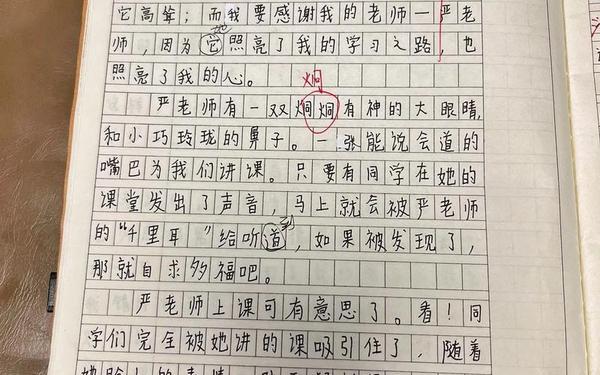 它高耸；而我要感谢我的老师一严老
她
师，因为它照亮了我的学习之路，也
照亮了我的心。
炯
严老师有一双炯炯有神的大眼睛，
和小巧玲珑的鼻子。一张能说会道的
嘴巴为我们讲课。只要有同学在她的
课堂发出了声音，马上就会被严老师
到
的“千里耳”给听道，如果被发现了，
那就自求多福吧。
严老师上课可有意思了。看！同
学们完全被她讲的课吸引住了，随着